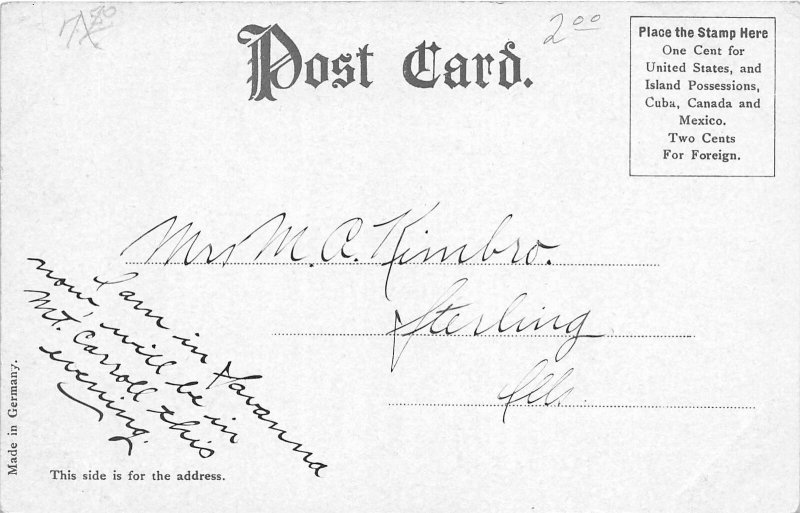 2.00
Post Card.
Place the Stamp Here
One Cent for
United States, and
Island Possessions,
Cuba, Canada and
Mexico.
Two Cents
For Foreign.
Mrs M. A. Kimbro.
Sterling
Ills.
I am in Savanna
now, will be in
Mt. Carroll this
evening.
Made in Germany.
This side is for the address.